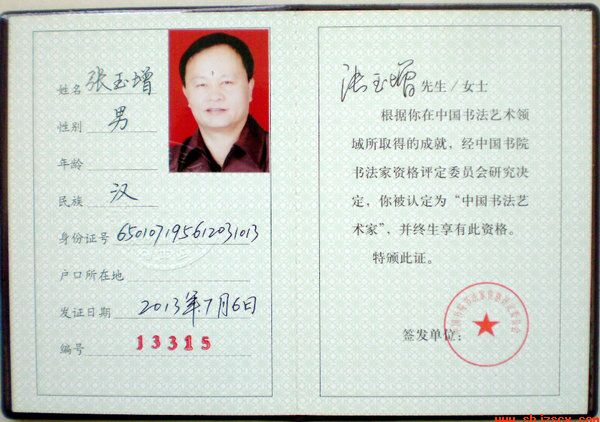 姓名 张玉增
性别 男
年龄
民族 汉
身份证号 650107195612031013
户口所在地
发证日期 2013年7月6日
编号 13315
张玉增 先生/女士
根据你在中国书法艺术领
域所取得的成就，经中国书院
书法家资格评定委员会研究决
定，你被认定为“中国书法艺术
家”，并终生享有此资格。
特颁此证。
签发单位：
中国书院书法家资格评定委员会